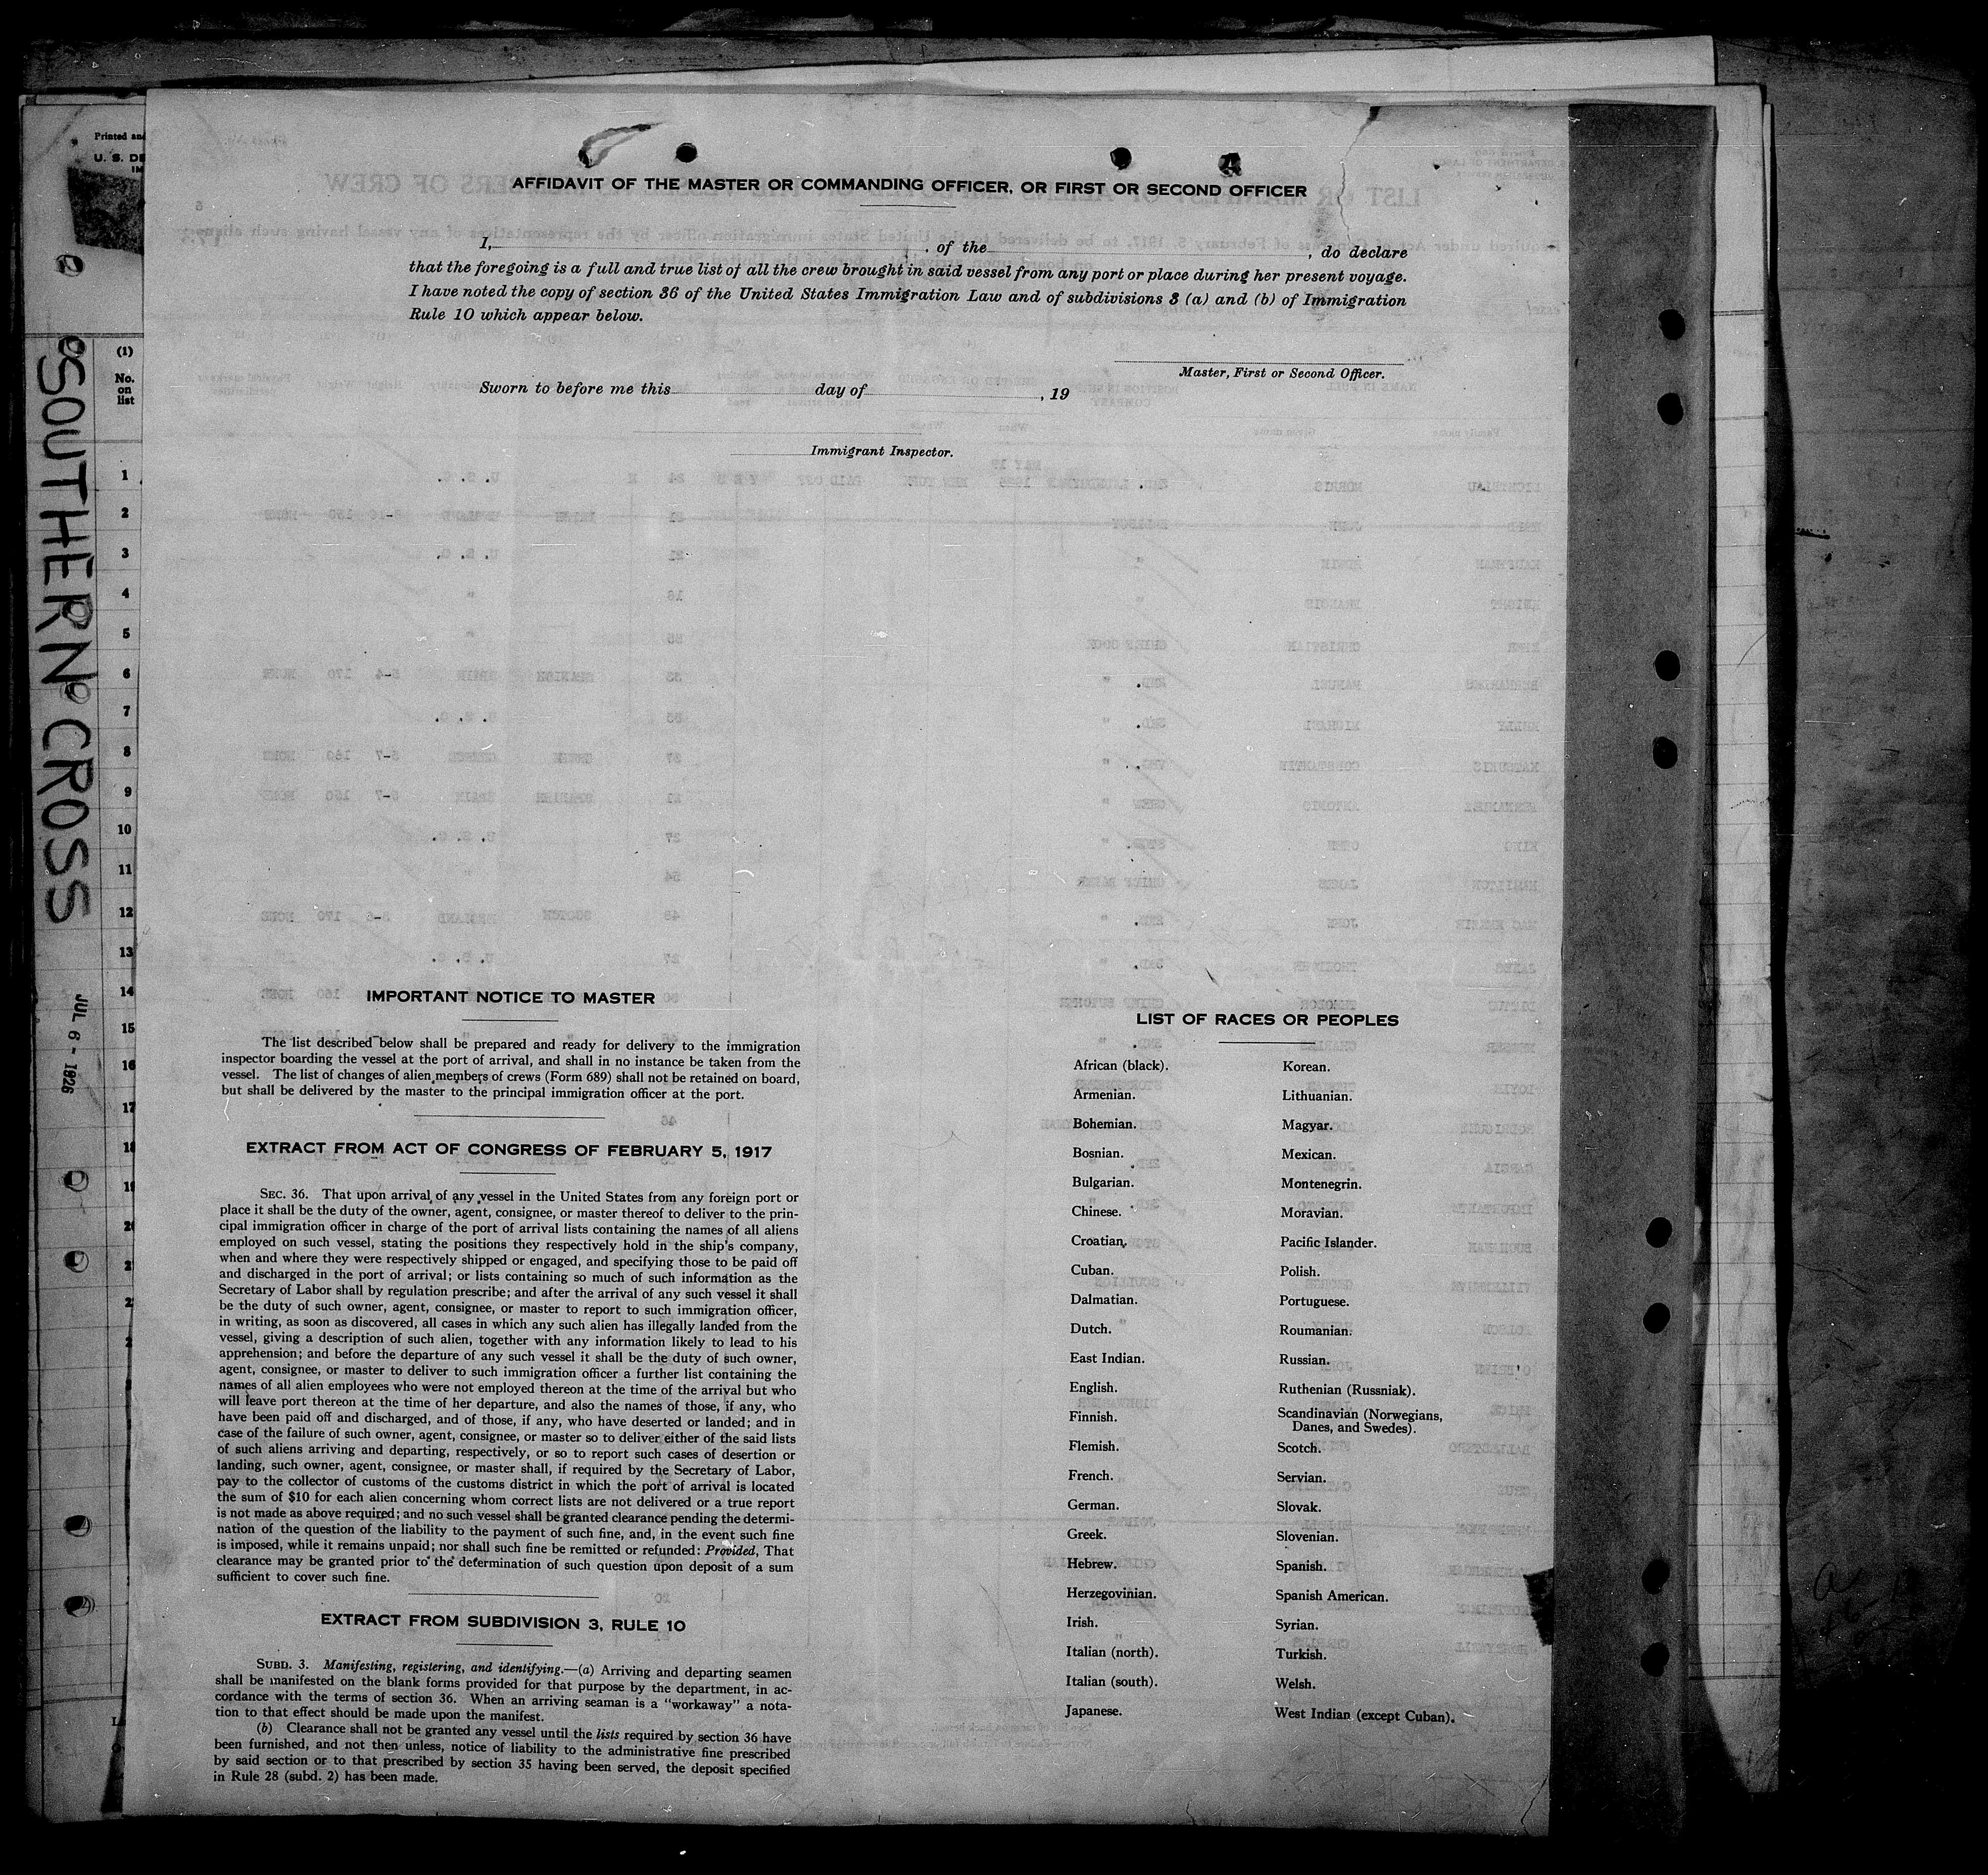 Printed and
U. S. DE
IM
SOUTHERN CROSS
JUL 6 - 1926
(1)
No.
on
list
1
2
3
4
5
6
7
8
9
10
11
12
13
14
15
16
17
18
AFFIDAVIT OF THE MASTER OR COMMANDING OFFICER, OR FIRST OR SECOND OFFICER
I, , of the , do declare
that the foregoing is a full and true list of all the crew brought in said vessel from any port or place during her present voyage.
I have noted the copy of section 36 of the United States Immigration Law and of subdivisions 3 (a) and (b) of Immigration
Rule 10 which appear below.
Master, First or Second Officer.
Sworn to before me this day of , 19
Immigrant Inspector.
IMPORTANT NOTICE TO MASTER
The list described below shall be prepared and ready for delivery to the immigration
inspector boarding the vessel at the port of arrival, and shall in no instance be taken from the
vessel. The list of changes of alien members of crews (Form 689) shall not be retained on board,
but shall be delivered by the master to the principal immigration officer at the port.
EXTRACT FROM ACT OF CONGRESS OF FEBRUARY 5, 1917
SEC. 36. That upon arrival of any vessel in the United States from any foreign port or
place it shall be the duty of the owner, agent, consignee, or master thereof to deliver to the prin-
cipal immigration officer in charge of the port of arrival lists containing the names of all aliens
employed on such vessel, stating the positions they respectively hold in the ship's company,
when and where they were respectively shipped or engaged, and specifying those to be paid off
and discharged in the port of arrival; or lists containing so much of such information as the
Secretary of Labor shall by regulation prescribe; and after the arrival of any such vessel it shall
be the duty of such owner, agent, consignee, or master to report to such immigration officer,
in writing, as soon as discovered, all cases in which any such alien has illegally landed from the
vessel, giving a description of such alien, together with any information likely to lead to his
apprehension; and before the departure of any such vessel it shall be the duty of such owner,
agent, consignee, or master to deliver to such immigration officer a further list containing the
names of all alien employees who were not employed thereon at the time of the arrival but who
will leave port thereon at the time of her departure, and also the names of those, if any, who
have been paid off and discharged, and of those, if any, who have deserted or landed; and in
case of the failure of such owner, agent, consignee, or master so to deliver either of the said lists
of such aliens arriving and departing, respectively, or so to report such cases of desertion or
landing, such owner, agent, consignee, or master shall, if required by the Secretary of Labor,
pay to the collector of customs of the customs district in which the port of arrival is located
the sum of $10 for each alien concerning whom correct lists are not delivered or a true report
is not made as above required; and no such vessel shall be granted clearance pending the determi-
nation of the question of the liability to the payment of such fine, and, in the event such fine
is imposed, while it remains unpaid; nor shall such fine be remitted or refunded: Provided, That
clearance may be granted prior to the determination of such question upon deposit of a sum
sufficient to cover such fine.
EXTRACT FROM SUBDIVISION 3, RULE 10
SUBD. 3. Manifesting, registering, and identifying.—(a) Arriving and departing seamen
shall be manifested on the blank forms provided for that purpose by the department, in ac-
cordance with the terms of section 36. When an arriving seaman is a "workaway" a nota-
tion to that effect should be made upon the manifest.
(b) Clearance shall not be granted any vessel until the lists required by section 36 have
been furnished, and not then unless, notice of liability to the administrative fine prescribed
by said section or to that prescribed by section 35 having been served, the deposit specified
in Rule 28 (subd. 2) has been made.
LIST OF RACES OR PEOPLES
African (black).
Armenian.
Bohemian.
Bosnian.
Bulgarian.
Chinese.
Croatian.
Cuban.
Dalmatian.
Dutch.
East Indian.
English.
Finnish.
Flemish.
French.
German.
Greek.
Hebrew.
Herzegovinian.
Irish.
Italian (north).
Italian (south).
Japanese.
Korean.
Lithuanian.
Magyar.
Mexican.
Montenegrin.
Moravian.
Pacific Islander.
Polish.
Portuguese.
Roumanian.
Russian.
Ruthenian (Russniak).
Scandinavian (Norwegians,
Danes, and Swedes).
Scotch.
Servian.
Slovak.
Slovenian.
Spanish.
Spanish American.
Syrian.
Turkish.
Welsh.
West Indian (except Cuban).